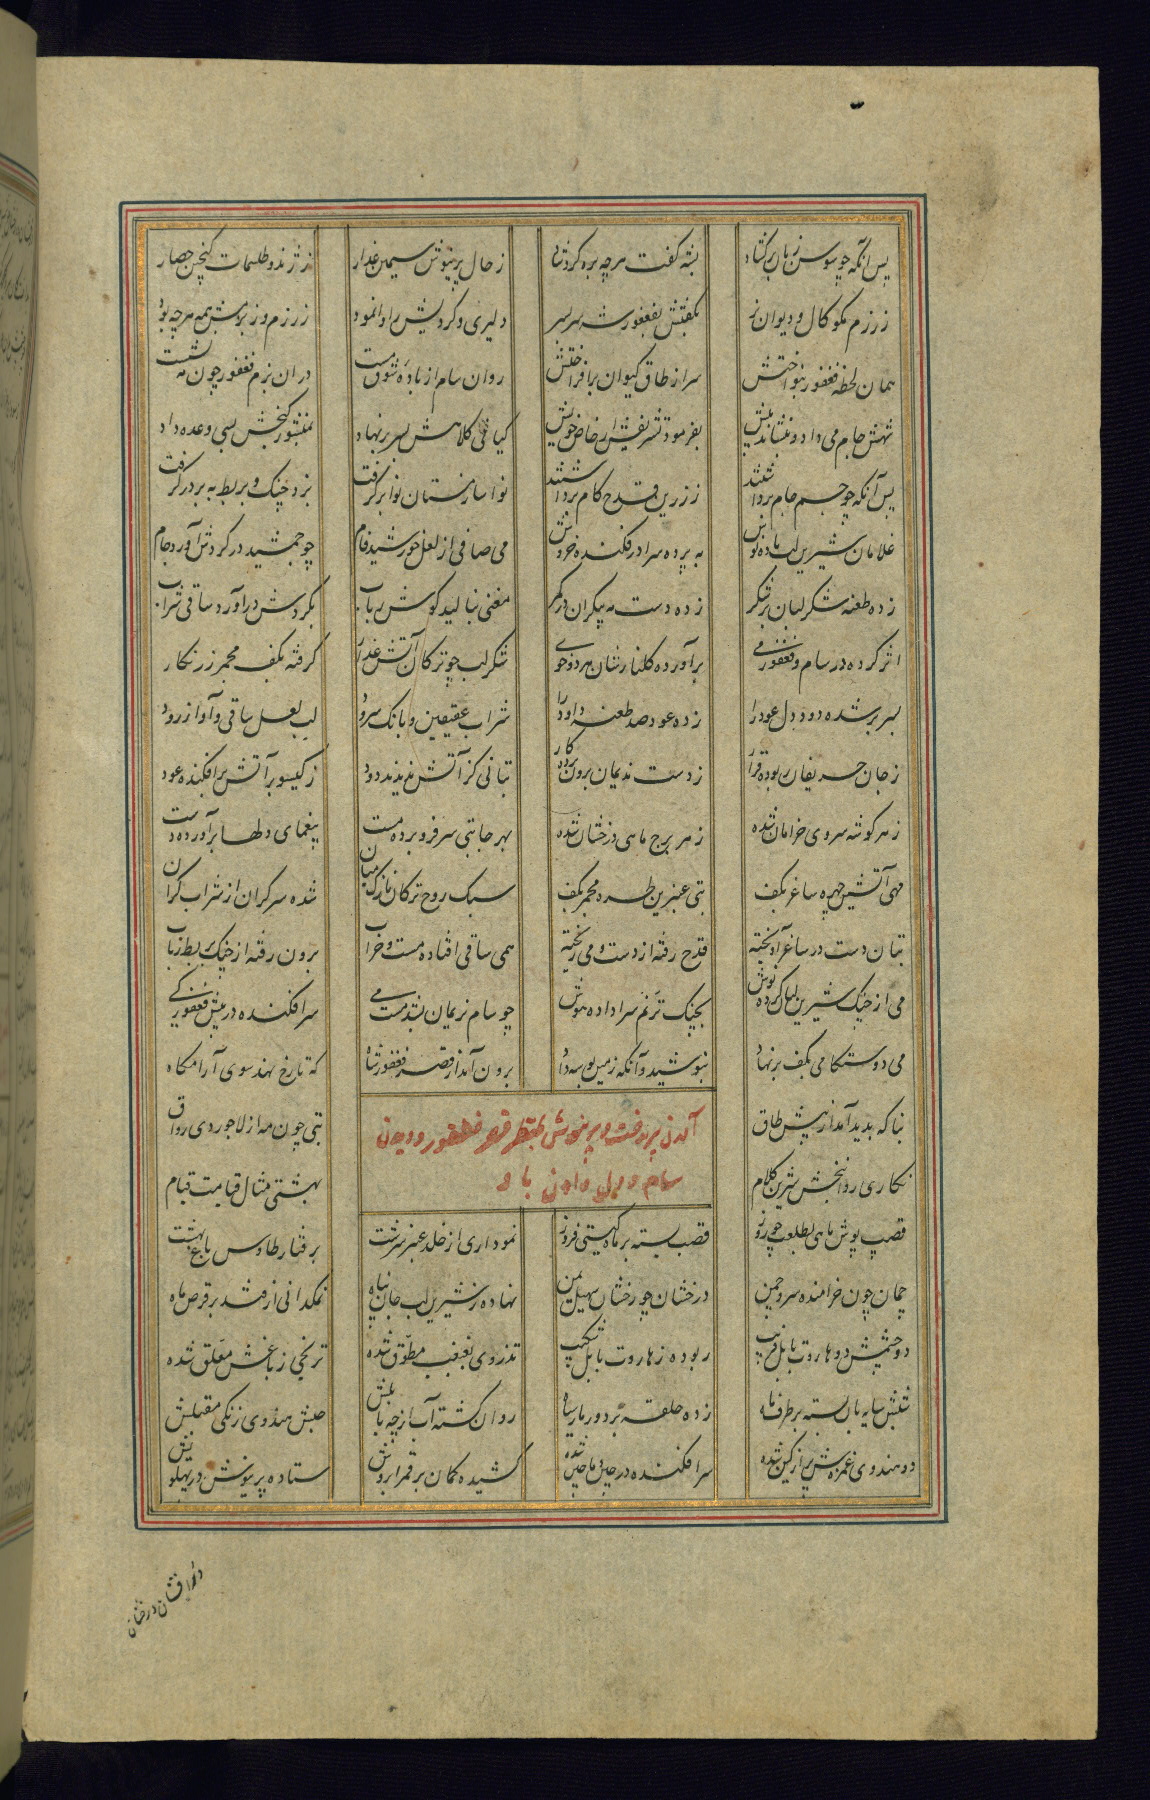 پس آنکه چو سوسن زبان برکشاد بشه گفت هرچه بره کردش یاد ز حال پریوش سیمین عذار ز ژند و طلسمات گنجین حصار
ز رزم مکوکال و دیوان نر بگفتش بفغفور شه سر بسر دلیری و گردیش را وانمود ز رزم و ز بزمش همه هرچه بود
همان لحظه فغفور بنواختش سر از طاق کیوان برافراختش روان سام از باده شوق مست در ان بزم فغفور چون مه نشست
شهش جام می داد و بنشاند پیش بفرمود تشریفش از خاص خویش کیانی کلاهش بسر بر نهاد بمنشور گنجش بسی وعده داد
پس آنکه چو جم جام برداشتند ز زرین قدح کام برداشتند نواساز دستان نوا برگرفت بزد چنگ و بربط به بر در گرفت
غلامان شیرین لب باده نوش به پرده سرا در فکنده خروش می صافی از لعل خورشید فام چو جمشید در گردش آورد جام
زده طعنه شکر لبان بر شکر زده دست مه پیکران در کمر مغنی بنالید گوش رباب بگردش درآورد ساقی شراب
اثر کرده در سام و فغفور می برآورده گلنارشان هر دو خوی شکر لب چو ترکان آتش عذار گرفته بکف مجمر زرنگار
بسر بر شده دود دل عود را زده عود صد طعنه داود را شراب عقیقین و بانک سرود لب لعل ساقی و آواز رود
ز جان حریفان ربوده قرار ز دست ندیمان برون برده کار بتانی کز آتش ندیدند دود ز گیسو بر آتش برافکنده عود
ز هر گوشه سروی خرامان شده ز هر برج ماهی درخشان شده بهر جا بتی سر فرو برده مست بیغمای دلها برآورده دست
مهی آتشین چهره ساغر بکف بتی عنبرین طره مجمر بکف سبک روح ترکان نازک میان شده سر گران از شراب گران
بتان دست در ساغر آویخته قدح رفته از دست و می ریخته همی ساقی افتاده مست و خراب برون رفته از چنگ بربط رباب
می از چنگ شیرین لبان کرده نوش بچنگ ترنم سرا داده هوش چو سام نریمان بشد مست می سر افکنده در پیش فغفور کی
می دوستکامی بکف بر نهاد بنوشید و آنکه زمین بوسه داد برون آمد از قصر فغفور شاه که تا رخ نهد سوی آرامگاه
آمدن پریدخت و پریوش بمنظر قصر فغفور و دیدن
سام و دل دادن باو
بناکه بدید آمد از پیش طاق بتی چون مه از لاجوردی رواق
نگاری روانبخش شیرین کلام بهشتی مثال قیامت قیام
قصب پوش ماهی بطلعت چو روز قصب بسته بر ماه گیتی فروز نموداری از خلد عنبر سرشت برفتار طاوس باغ بهشت
چمان چون خرامنده سرو چمن درخشان چو رخشان سهیل یمن نهاده ز شیرین لب جان پناه نمکدانی از قند بر قرص ماه
دو چشمش دو هاروت بابل فریب ربوده ز هاروت بابل شکیب تذروی بغبغب مطوق شده ترنجی ز باغش معلق شده
شبش سایه بان بسته بر طرف ماه زده حلقه بر دور مار سیاه روان گشته آب از چه بابلش حبش هندوی زنگی مقبلش
دو هندوی غمزه ش پر از کین شده سر افکنده در چین و ماچین شده کشیده کمان بر قمر ابرویش ستاده پریوش در پهلویش
درافشان درخشان